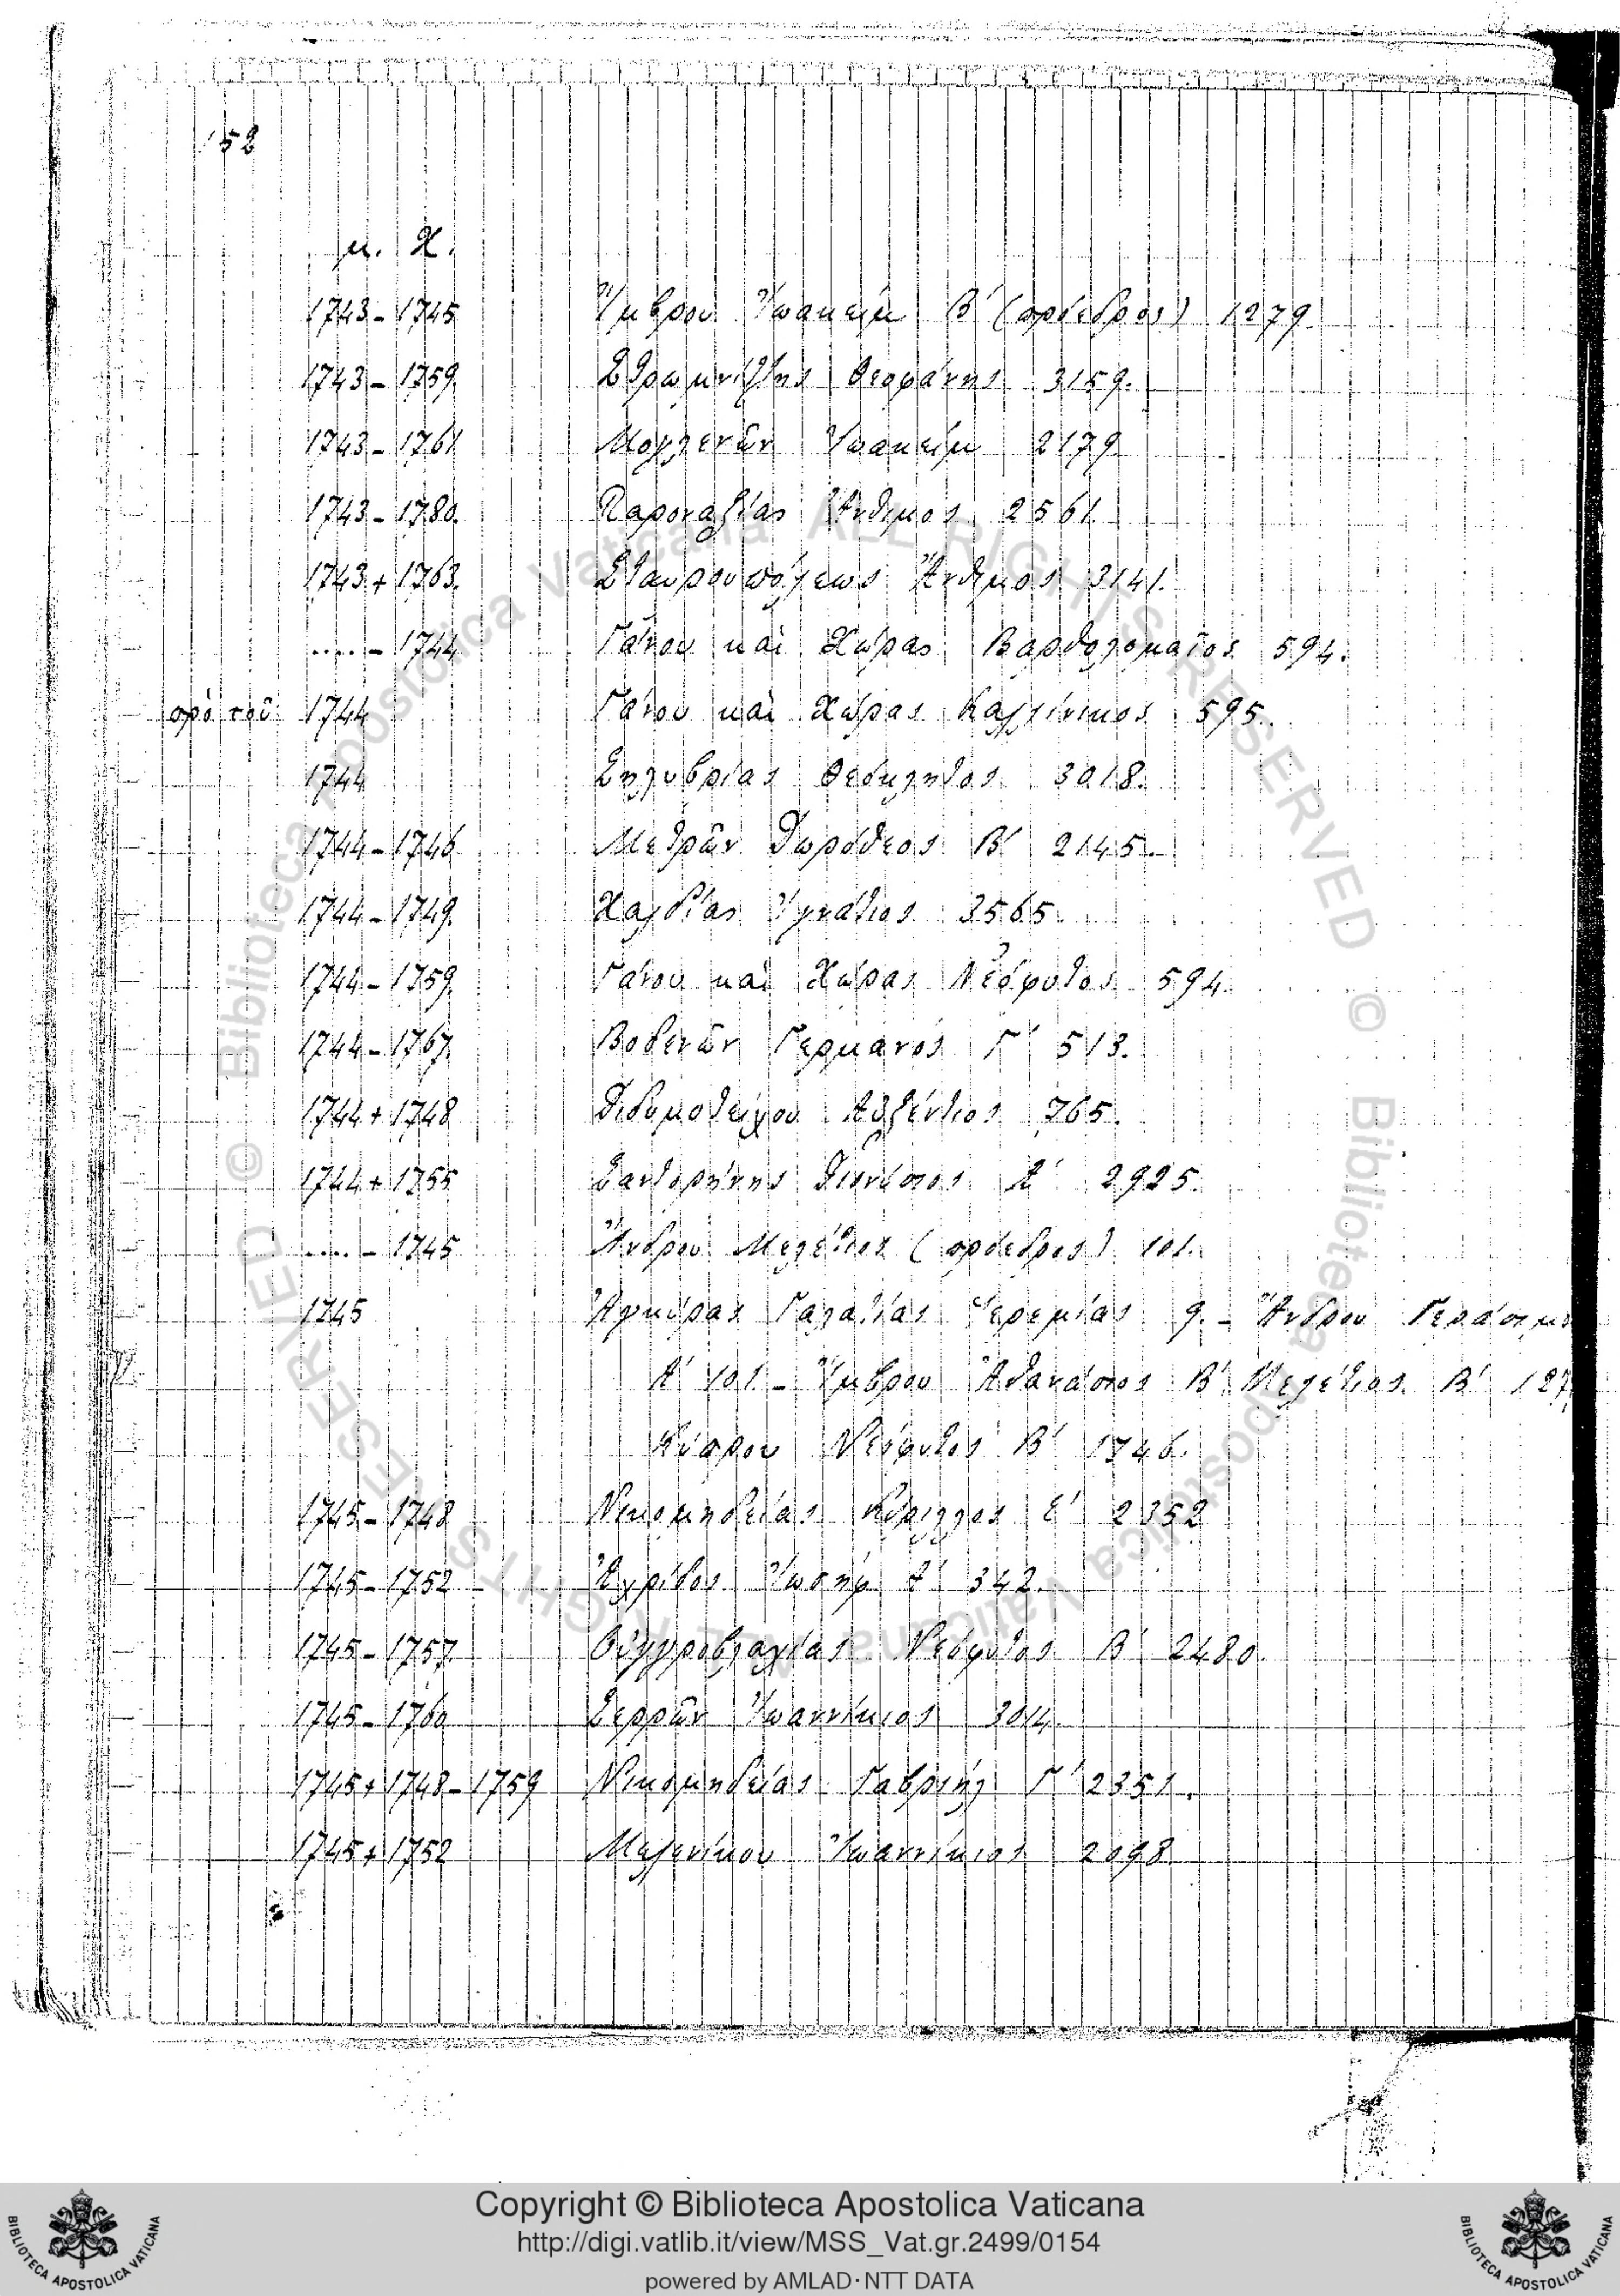 158
μ. Χ.
1743 - 1745 Ἴμβρου Ἰωακεὶμ Β΄ (πρόεδρος) 1279.
1743 - 1759. Στρωμνίτζης Θεοφάνης 3159.
1743 - 1761 Μογλενῶν Ἰωακεὶμ 2179
1743 - 1780. Παροναξίας Ἄνθιμος 2561.
1743 + 1763. Σταυρουπόλεως Ἄνθιμος 3141.
..... - 1744 Γάνου καὶ Χώρας Βαρθολομαῖος 594.
πρὸ τοῦ 1744 Γάνου καὶ Χώρας Καλλίνικος 595.
1744 Σηλυβρίας Θεόκλητος 3018.
1744 - 1746 Μετρῶν Δωρόθεος Β΄ 2145.
1744 - 1749. Χαλδίας Ἰγνάτιος 3565.
1744 - 1759. Γάνου καὶ Χώρας Νεόφυτος 594.
1744 - 1767. Βοδενῶν Γερμανός Γ΄ 513.
1744 + 1748 Διδυμοτείχου Αὐξέντιος 765.
1744 + 1755 Σαντορήνης Διονύσιος Α΄ 2925.
..... - 1745 Ἄνδρου Μελέτιος (πρόεδρος) 101.
1745 Ἀγκύρας Γαλατίας Ἱερεμίας 9. - Ἄνδρου Γεράσιμο
Α΄ 101 - Ἴμβρου Ἀθανάσιος Β΄ Μελέτιος Β΄ 127
Κύπρου Νεόφυτος Β΄ 1746.
1745 - 1748 Νικομηδείας Κύριλλος Ε΄ 2352
1745 - 1752 Ἀχρίδος Ἰωσὴφ Α΄ 342.
1745 - 1757 Οὐγγροβλαχίας Νεόφυτος Β΄ 2480.
1745 - 1760 Σερρῶν Ἰωαννίκιος 3014
1745 + 1748 - 1759 Νικομηδείας Γαβριὴλ Γ΄ 2351.
1745 + 1752 Μελενίκου Ἰωαννίκιος 2098
Copyright © Biblioteca Apostolica Vaticana
http://digi.vatlib.it/view/MSS_Vat.gr.2499/0154
powered by AMLAD·NTT DATA